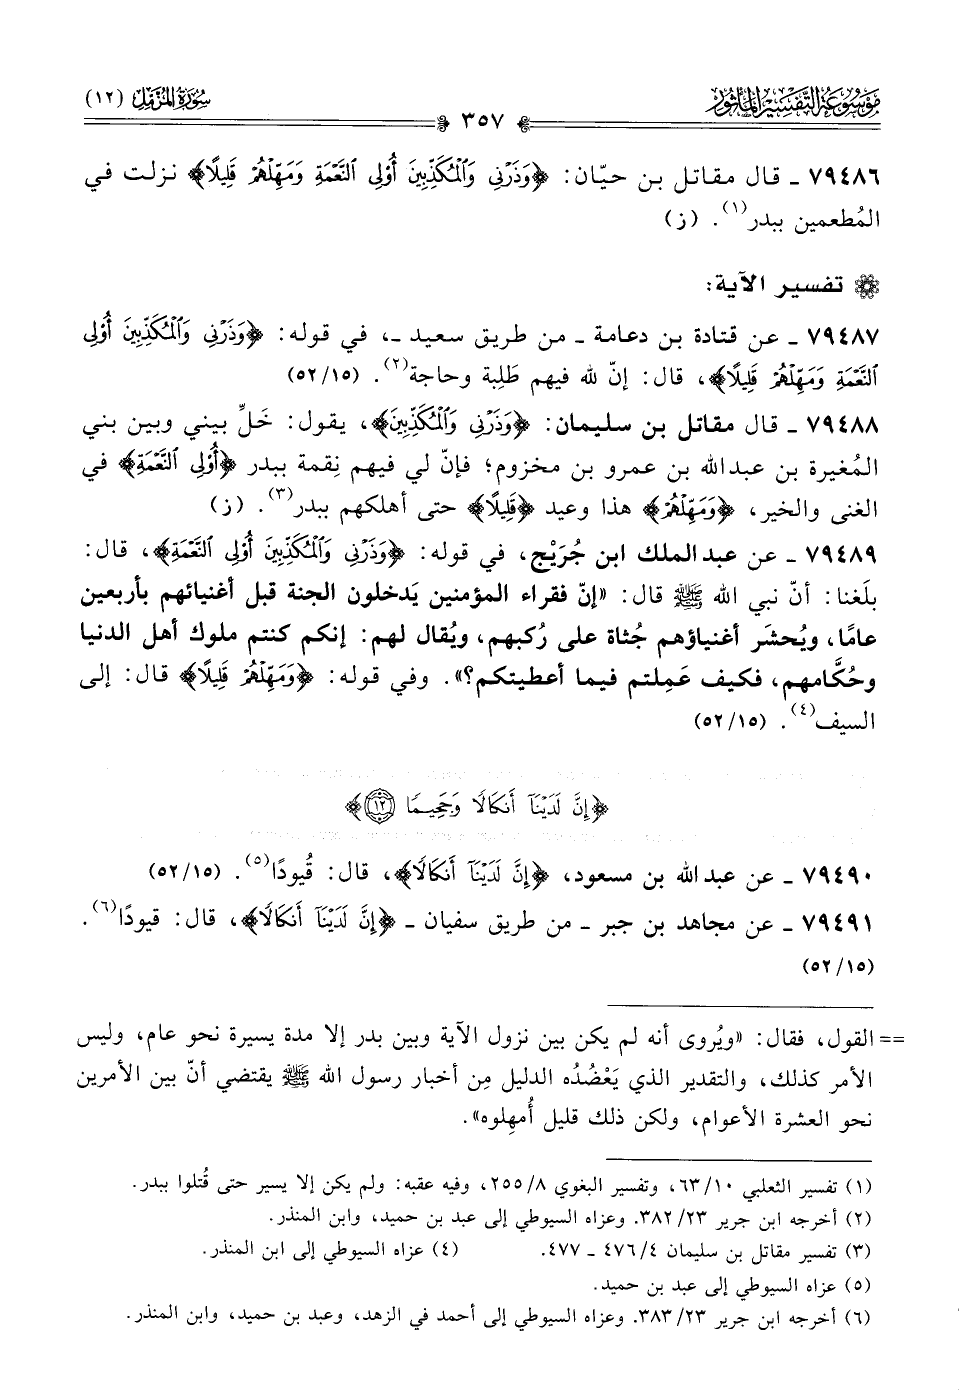 موسوعة التفسير المأثور
سورة المزمل (١٢)
٣٥٧
٧٩٤٨٦ ـ قال مقاتل بن حيّان: ﴿وَذَرْنِى وَٱلْمُكَذِّبِينَ أُو۟لِى ٱلنَّعْمَةِ وَمَهِّلْهُمْ قَلِيلًا﴾ نزلت في
المُطعمين ببدر(١). (ز)
تفسير الآية:
٧٩٤٨٧ ـ عن قتادة بن دعامة ـ من طريق سعيد ـ، في قوله: ﴿وَذَرْنِى وَٱلْمُكَذِّبِينَ أُو۟لِى
ٱلنَّعْمَةِ وَمَهِّلْهُمْ قَلِيلًا﴾، قال: إنّ لله فيهم طَلِبة وحاجة(٢). (٥٢/١٥)
٧٩٤٨٨ ـ قال مقاتل بن سليمان: ﴿وَذَرْنِى وَٱلْمُكَذِّبِينَ﴾، يقول: خَلِّ بيني وبين بني
المُغيرة بن عبدالله بن عمرو بن مخزوم؛ فإنّ لي فيهم نِقمة ببدر ﴿أُو۟لِى ٱلنَّعْمَةِ﴾ في
الغنى والخير، ﴿وَمَهِّلْهُمْ﴾ هذا وعيد ﴿قَلِيلًا﴾ حتى أهلكهم ببدر(٣). (ز)
٧٩٤٨٩ ـ عن عبدالملك ابن جُرَيْج، في قوله: ﴿وَذَرْنِى وَٱلْمُكَذِّبِينَ أُو۟لِى ٱلنَّعْمَةِ﴾، قال:
بلَغنا: أنّ نبي الله ﷺ قال: «إنّ فقراء المؤمنين يَدخلون الجنة قبل أغنيائهم بأربعين
عامًا، ويُحشَر أغنياؤهم جُثاة على رُكبهم، ويُقال لهم: إنكم كنتم ملوك أهل الدنيا
وحُكَّامهم، فكيف عَمِلتم فيما أعطيتكم؟». وفي قوله: ﴿وَمَهِّلْهُمْ قَلِيلًا﴾ قال: إلى
السيف(٤). (٥٢/١٥)
﴿إِنَّ لَدَيْنَآ أَنكَالًا وَجَحِيمًا ١٢﴾
٧٩٤٩٠ ـ عن عبدالله بن مسعود، ﴿إِنَّ لَدَيْنَآ أَنكَالًا﴾، قال: قُيودًا(٥). (٥٢/١٥)
٧٩٤٩١ ـ عن مجاهد بن جبر ـ من طريق سفيان ـ ﴿إِنَّ لَدَيْنَآ أَنكَالًا﴾، قال: قيودًا(٦).
(٥٢/١٥)
== القول، فقال: «ويُروى أنه لم يكن بين نزول الآية وبين بدر إلا مدة يسيرة نحو عام، وليس
الأمر كذلك، والتقدير الذي يَعْضُده الدليل مِن أخبار رسول الله ﷺ يقتضي أنّ بين الأمرين
نحو العشرة الأعوام، ولكن ذلك قليل أُمهِلوه».
(١) تفسير الثعلبي ٦٣/١٠، وتفسير البغوي ٢٥٥/٨، وفيه عقبه: ولم يكن إلا يسير حتى قُتلوا ببدر.
(٢) أخرجه ابن جرير ٣٨٢/٢٣. وعزاه السيوطي إلى عبد بن حميد، وابن المنذر.
(٣) تفسير مقاتل بن سليمان ٤٧٦/٤ ـ ٤٧٧. (٤) عزاه السيوطي إلى ابن المنذر.
(٥) عزاه السيوطي إلى عبد بن حميد.
(٦) أخرجه ابن جرير ٣٨٣/٢٣. وعزاه السيوطي إلى أحمد في الزهد، وعبد بن حميد، وابن المنذر.